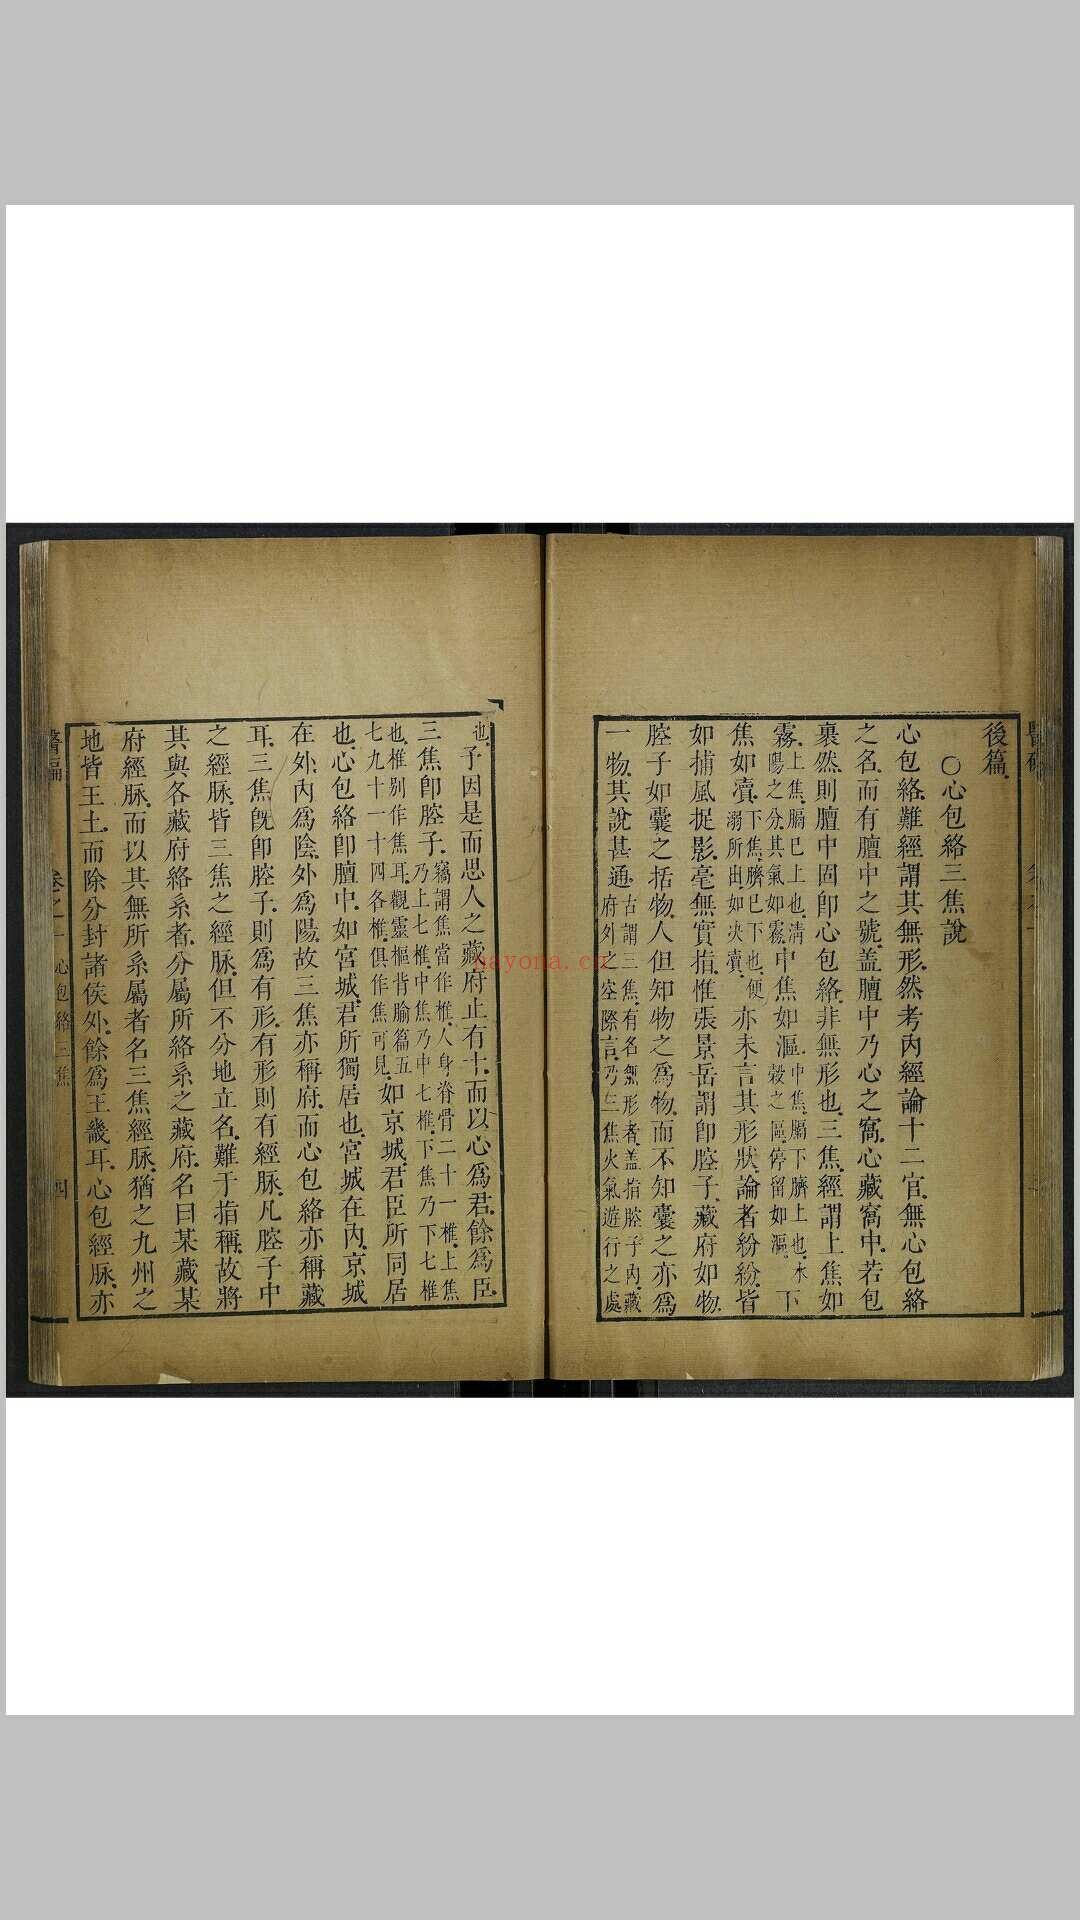 後篇
○心包絡三焦說
心包絡難經謂其無形然考內經論十二官無心包絡
之名而有膻中之號蓋膻中乃心之窩心藏窩中若包
裹然則膻中固卽心包絡非無形也三焦經謂上焦如
霧上焦膈已上也清陽之分其氣如霧中焦如漚中焦膈下臍上也水穀之區停留如漚下
焦如瀆下焦臍已下也便溺所由如决瀆亦未言其形狀論者紛紛皆
如捕風捉影毫無實指惟張景岳謂卽腔子藏府如物
腔子如囊之括物人但知物之爲物而不知囊之亦爲
一物其說甚通古謂三焦有名無形者蓋指腔子內藏府外之空際言乃三焦火氣遊行之處
也子因是而思人之藏府止有十而以心爲君餘爲臣
三焦卽腔子竊謂焦當作椎人身脊骨二十一椎上焦乃上七椎中焦乃中七椎下焦乃下七椎
也椎别作焦耳觀靈樞背腧篇五七九十一十四各椎俱作焦可見如京城君臣所同居
也心包絡卽膻中如宮城君所獨居也宮城在內京城
在外內爲陰外爲陽故三焦亦稱府而心包絡亦稱藏
耳三焦旣卽腔子則爲有形有形則有經脉凡腔子中
之經脉皆三焦之經脉但不分地立名難于指稱故將
其與各藏府絡系者分屬所絡系之藏府名曰某藏某
府經脉而以其無所系屬者名三焦經脉猶之九州之
地皆王土而除分封諸侯外餘爲王畿耳心包經脉亦
醫碥
卷之一
心包絡三焦
四
nayona.cn